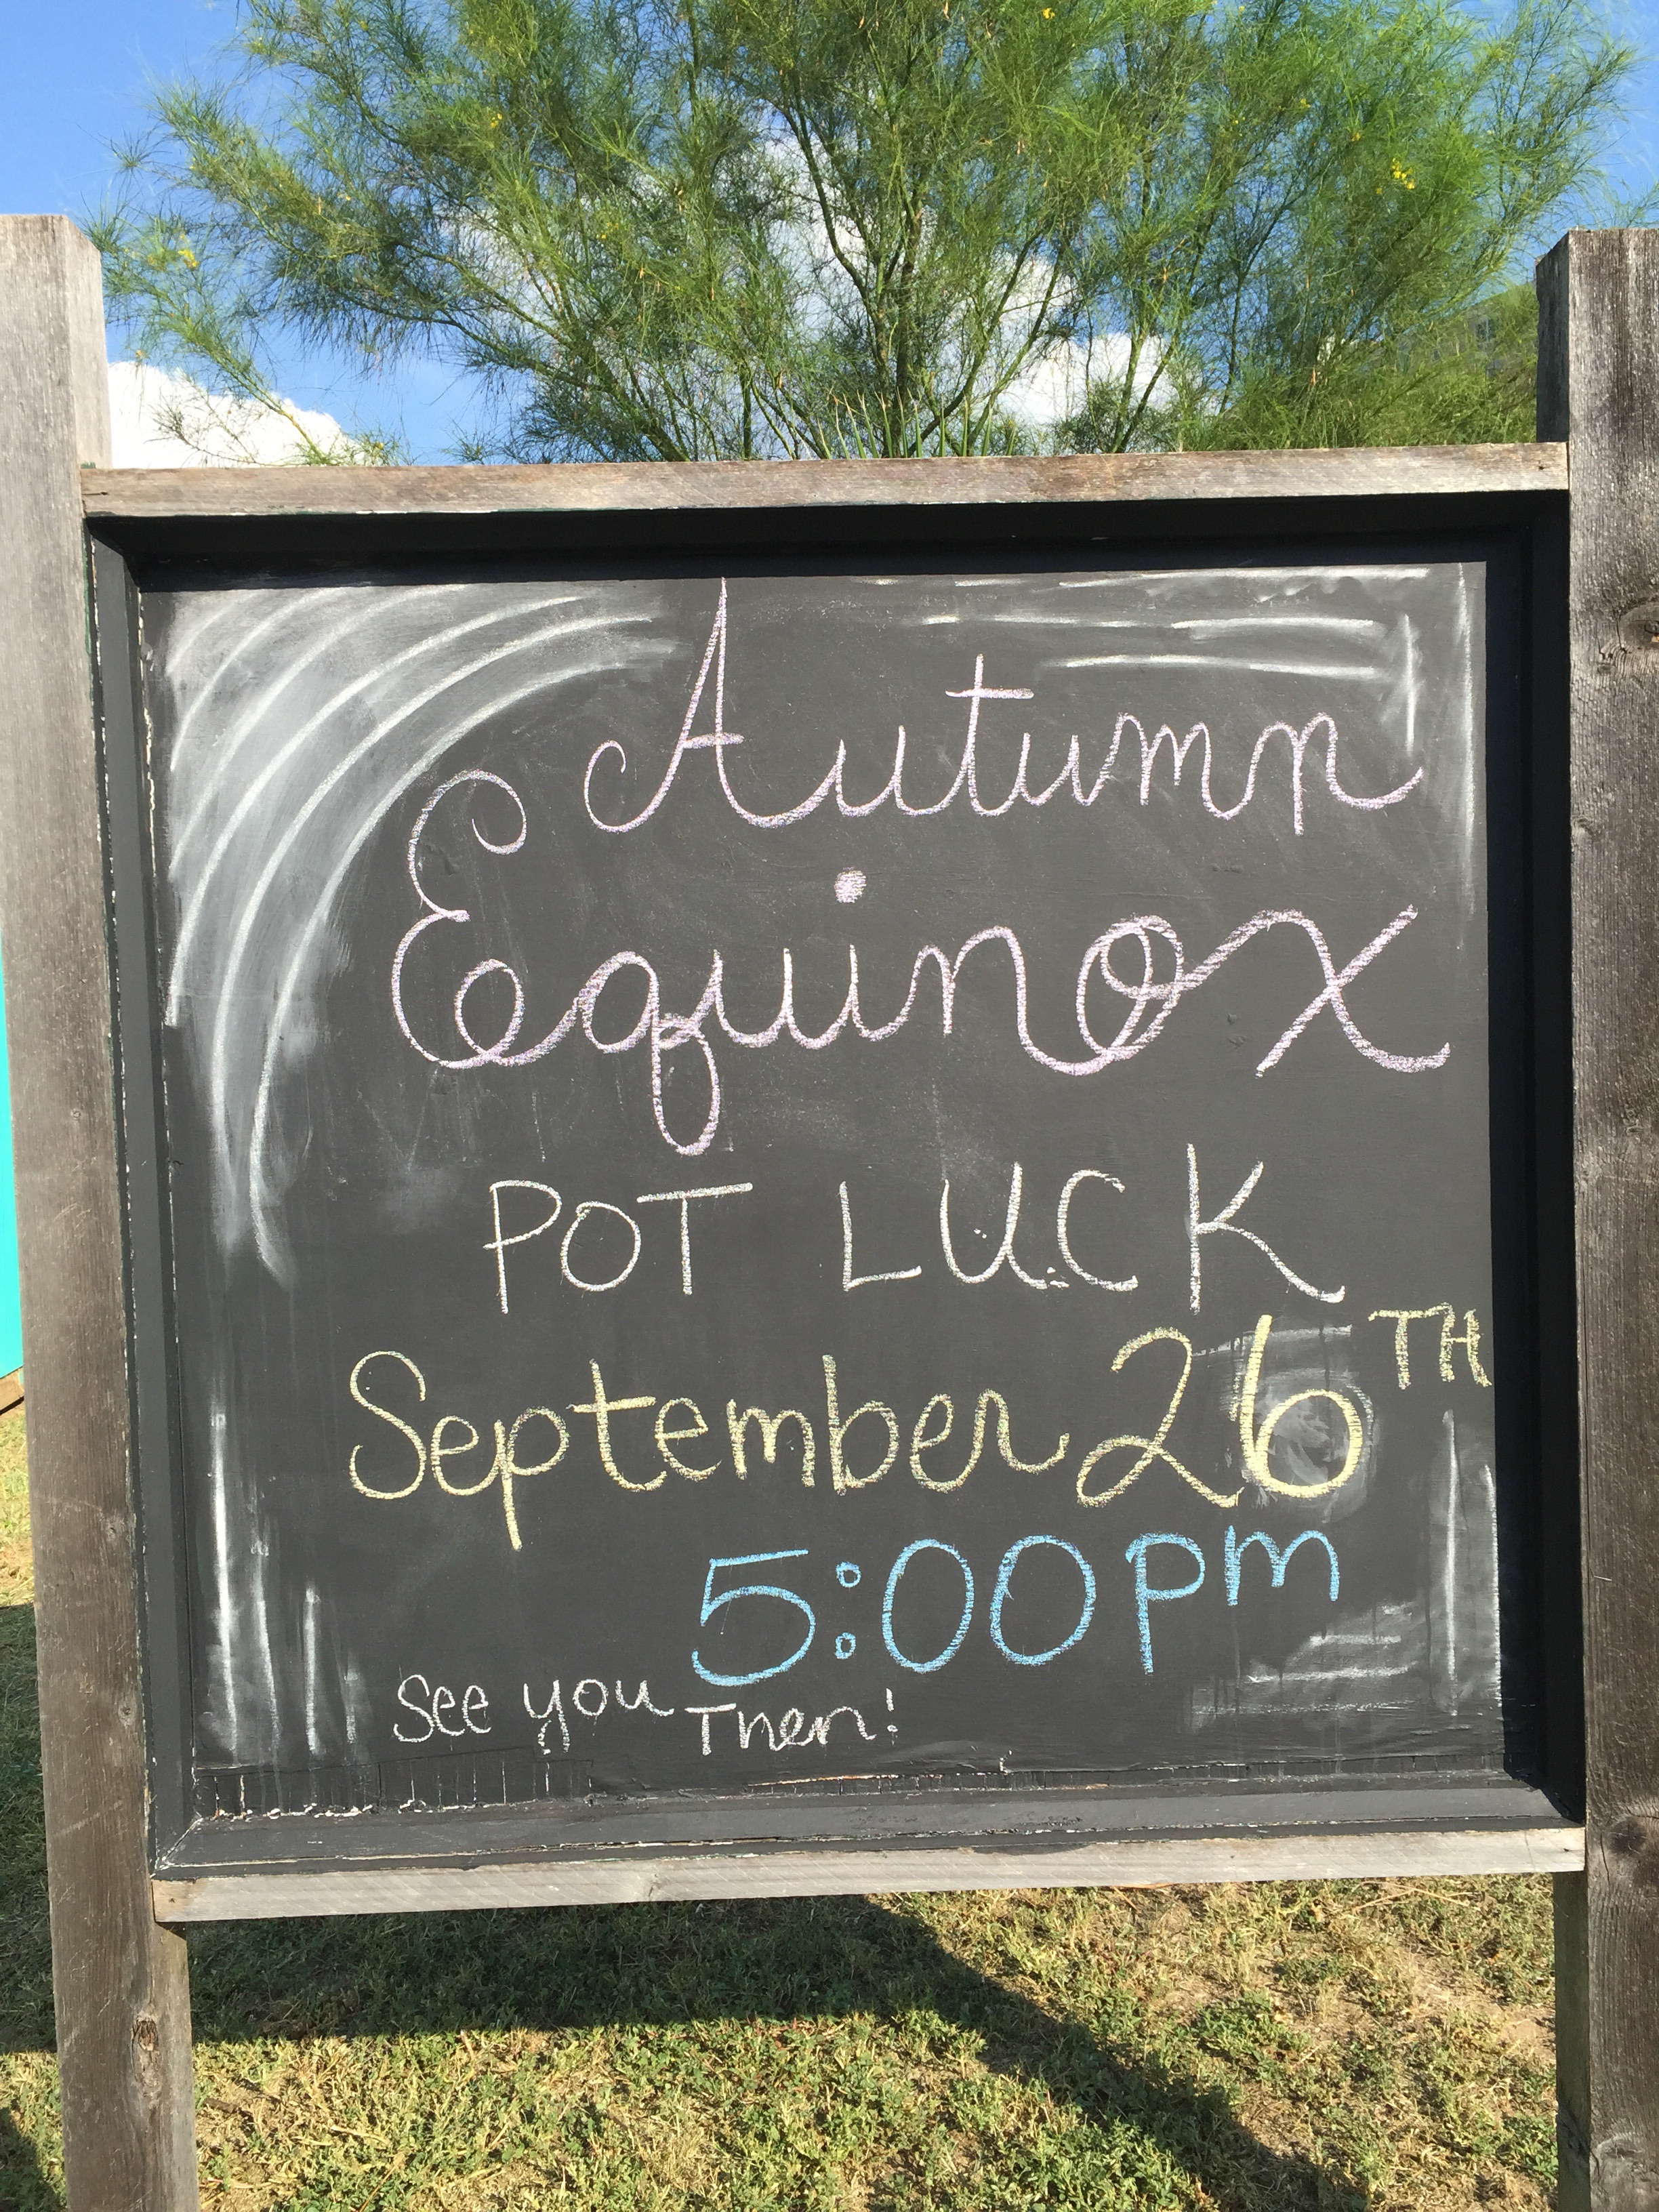 Autumn
Equinox
POT LUCK
September 26TH
5:00pm
See you Then!